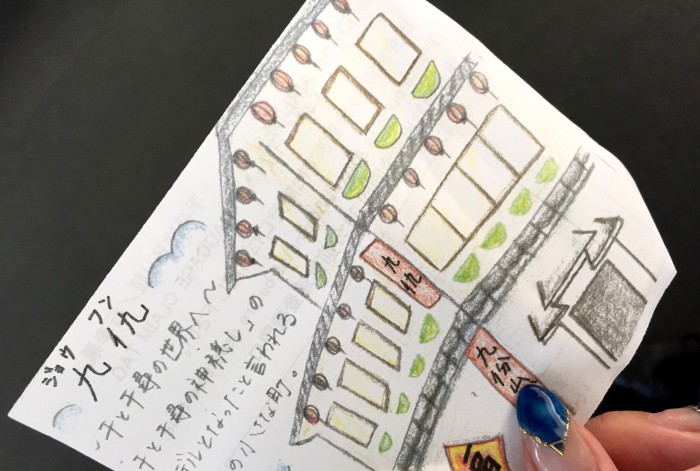 ジョウ フン
九仇
千と千尋の世界へ〜
千と千尋の神隠し」の
デルとなったと言われる
の小さな町。
九仇
九份